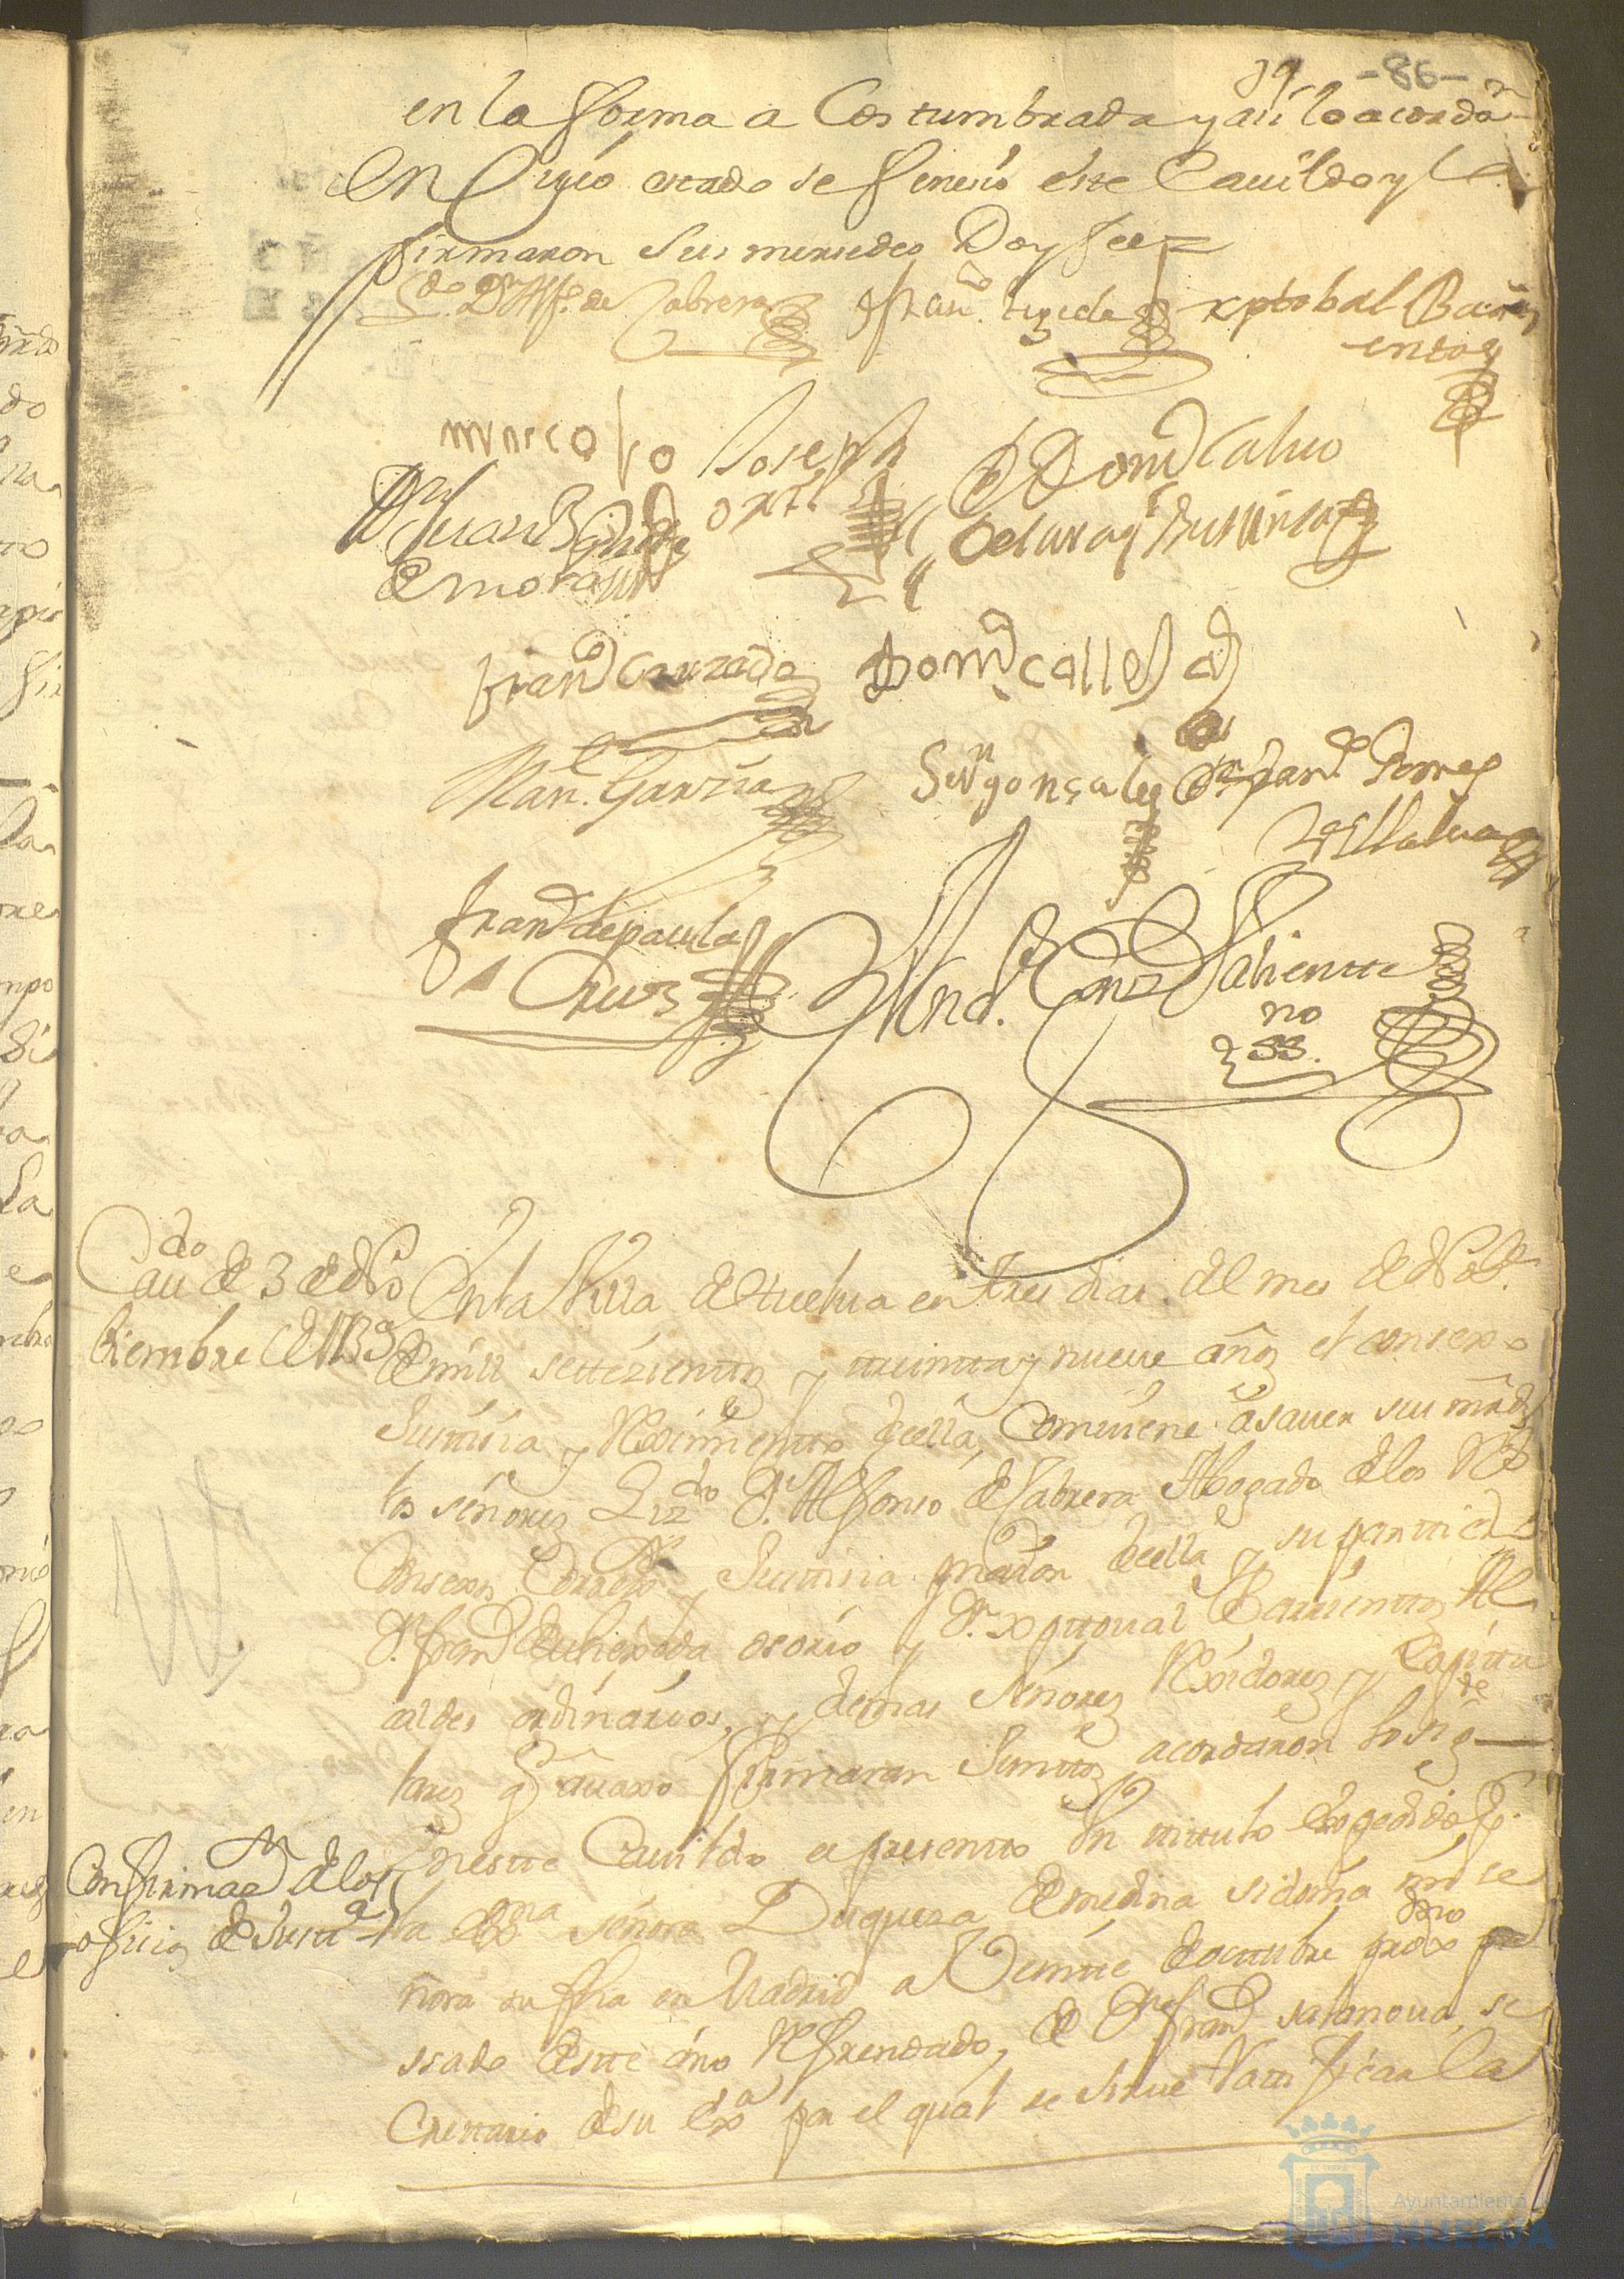 39 -86-
en la forma a Costumbrada y assi lo acordaron
En Cuyo estado se feneció este Cavildo y lo
firmaron Sus mersedes Doy fee
Lizdo Dn Alfo de Cabrera
xptobal Barri
entos
Joseph
orti
Domo Calvo
Dn Juan
de mora
Beltran
Frano
Domo calle
Man.l Garzia
Sevn gonçales Dn Frando Gomes
Villalva
Frano de paula
Cruz
And.s Valiente
no
SS.
Caudo de 3 de No
viembre de 1739
En la Villa de Huelva en tres dias del mes de Nove
de mill settezientos y treintta y nueve años el consexo
Justtizia y Reximiento de ella, Combiene a saver sus mrds
los señores Lizdo Dn Alfonso de Cabrera Abogado de los Rs
Consexos Corregr y Justtizia maior de ella y su parttido
Dn Frano de Quesada osorio y Dn xpttoual Barrientos Al
caldes ordinarios, y demas Señores Rexidores y Capittu
lares q auaxo firmaran Junttos acordaron lo sigte
Confirmazn de los
ofizios de Justta
En estte Cauildo se presentto Un tittulo expedido pr
la Exma señora Duquesa de medina sidonia mi se
ñora su fha en Madrid a Veintte de octtubre proxmo pa
ssado de estte año Refrendado, de Dn Frano salanova, se
crettario de su Exa por el qual se sirue Rattificar la
Ayuntamiento de
HUELVA